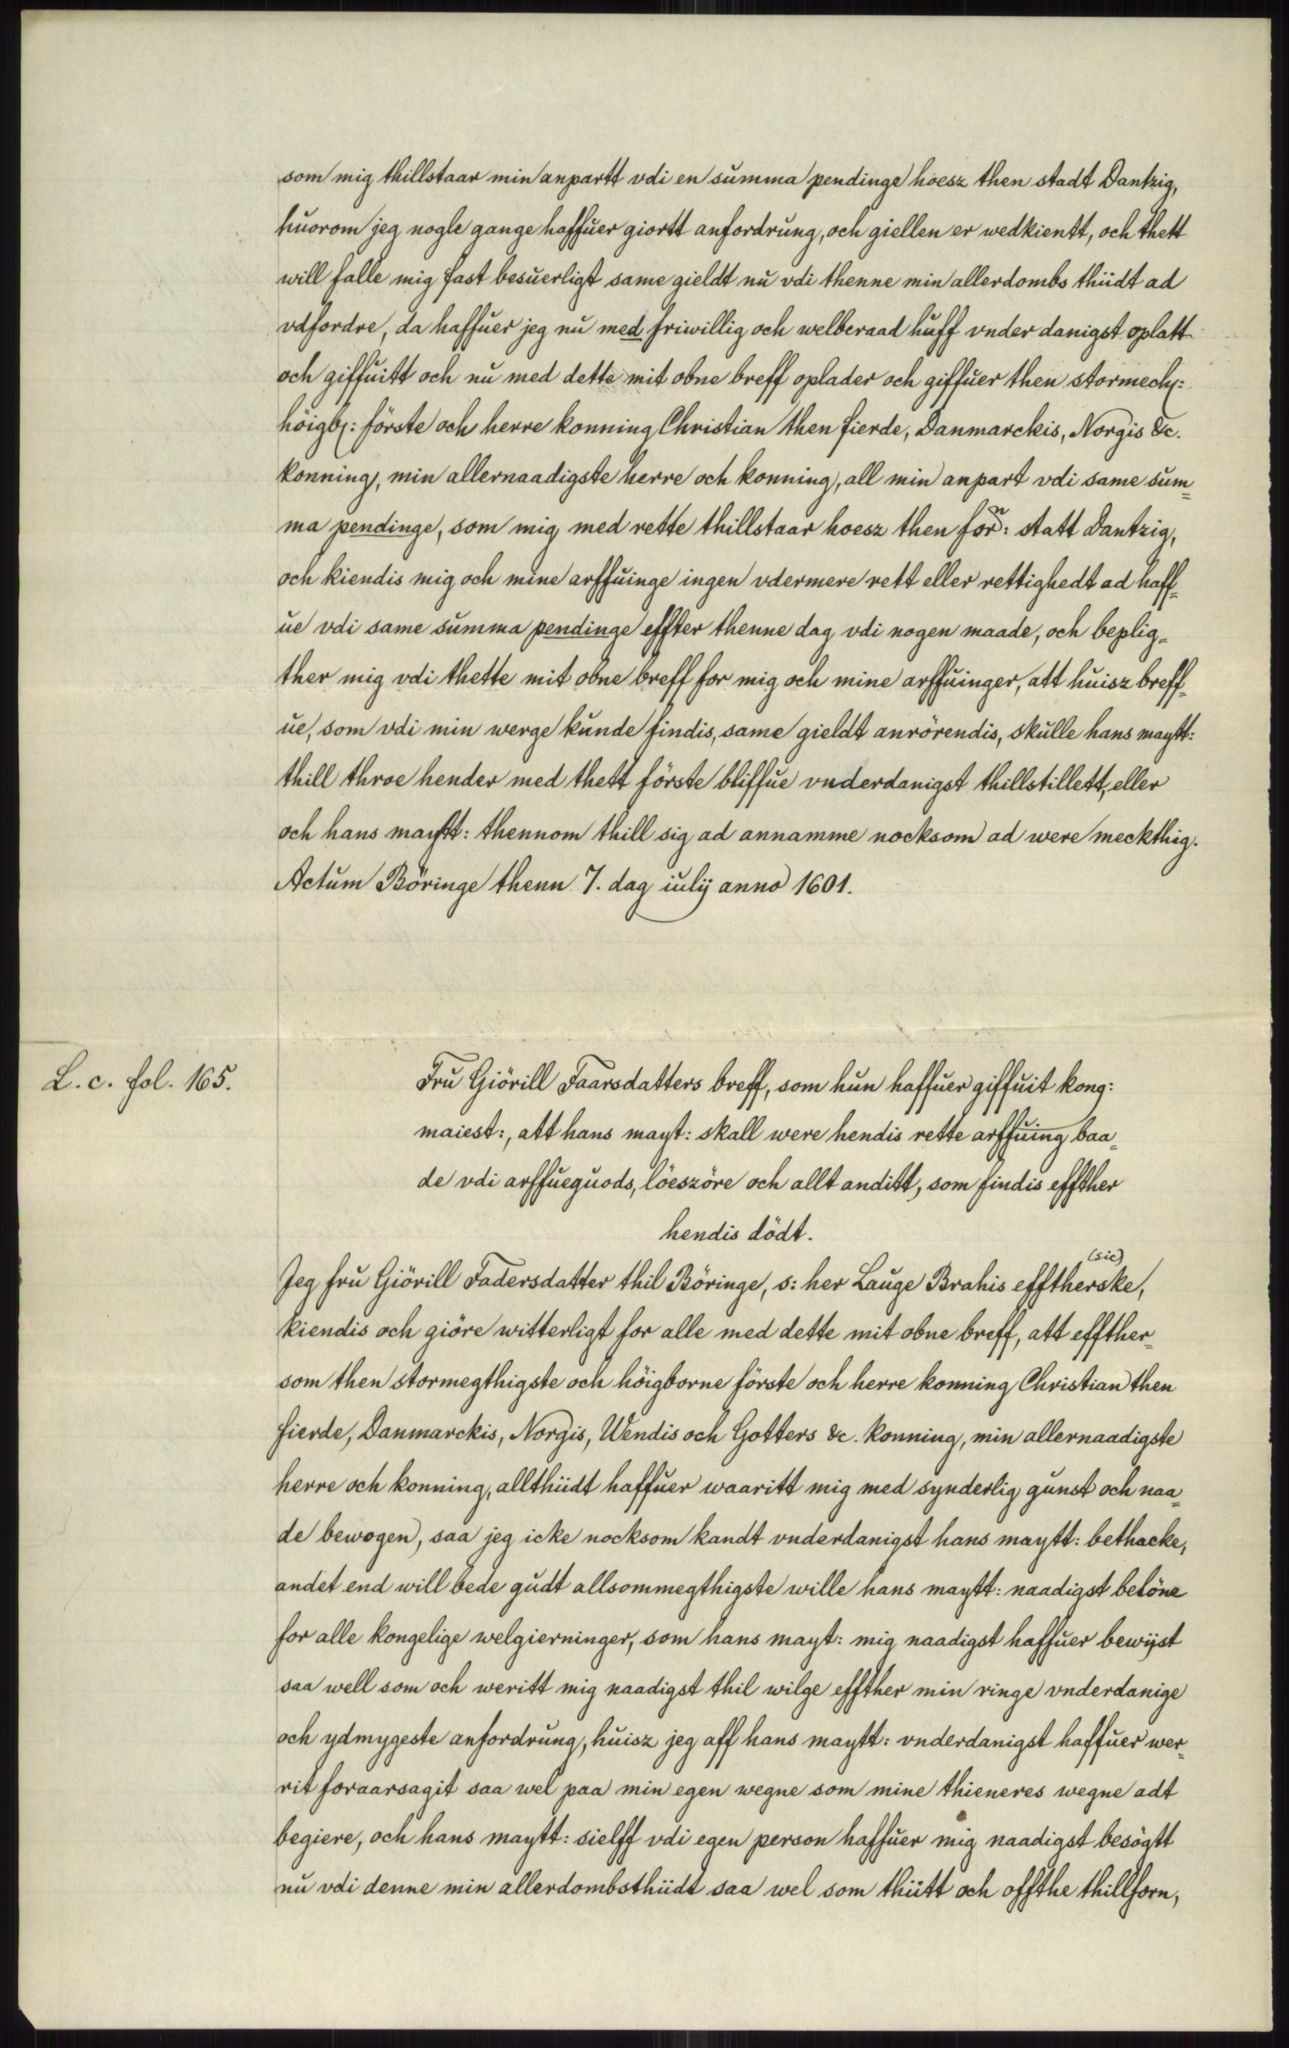 som mig thillstaar min anpartt vdi en summa pendinge hoesz then stadt Dantzig,
huorom jeg nogle gange haffuer giortt anfordrung, och giellen er wedkientt, och thett
will falle mig fast besuerligt same gieldt nu vdi thenne min allerdombs thiidt ad
vdfordre, da haffuer jeg nu med friwillig och welberaad huff vnderdanigst oplatt
och giffuitt och nu med dette mit obne breff oplader och giffuer then stormech:
höigb: förste och herre konning Christian then fierde, Danmarckis, Norgis &c.
konning, min allernaadigste herre och konning, all min anpart vdi same sum=
ma pendinge, som mig med rette thillstaar hoesz then forn: statt Dantzig,
och kiendis mig och mine arffuinge ingen vdermere rett eller rettighedt ad haff=
ue vdi same summa pendinge effter thenne dag vdi nogen maade, och beplig=
ther mig vdi thette mit obne breff for mig och mine arffuinger, att huisz breff=
ue, som vdi min werge kunde findis, same gieldt anrörendis, skulle hans maytt:
thill throe hender med thett förste bliffue vnderdanigst thillstillett, eller
och hans maytt: thennom thill sig ad annamme nocksom ad were meckthig.
Actum Böringe thenn 7. dag iulij anno 1601.
L. c. fol. 165.
Fru Giörill Faarsdatters breff, som hun haffuer giffuit kong:
maiest:, att hans mayt: skall were hendis rette arffuing baa=
de vdi arffueguods, löeszöre och allt anditt, som findis effther
hendis dödt.
(sic)
Jeg fru Giörill Fadersdatter thil Böringe, s: her Lauge Brahis efftherske,
kiendis och giöre witterligt for alle med dette mit obne breff, att effther=
som then stormegthigste och höigborne förste och herre konning Christian then
fierde, Danmarckis, Norgis, Wendis och Gotters &c. konning, min allernaadigste
herre och konning, allthiidt haffuer waaritt mig med synderlig gunst och naa=
de bewogen, saa jeg icke nocksom kandt vnderdanigst hans maytt: bethacke,
andet end will bede gudt allsommegthigste wille hans maytt: naadigst belöne
for alle kongelige welgierninger, som hans mayt: mig naadigst haffuer bewijst
saa well som och weritt mig naadigst thil wilge effther min ringe vnderdanige
och ydmygeste anfordrung, huisz jeg aff hans maytt: vnderdanigst haffuer wer=
rit foraarsagit saa wel paa min egen wegne som mine thieneres wegne adt
begiere, och hans maytt: sielff vdi egen person haffuer mig naadigst besögtt
nu vdi denne min allerdombsthiidt saa wel som thiitt och offthe thillforn,